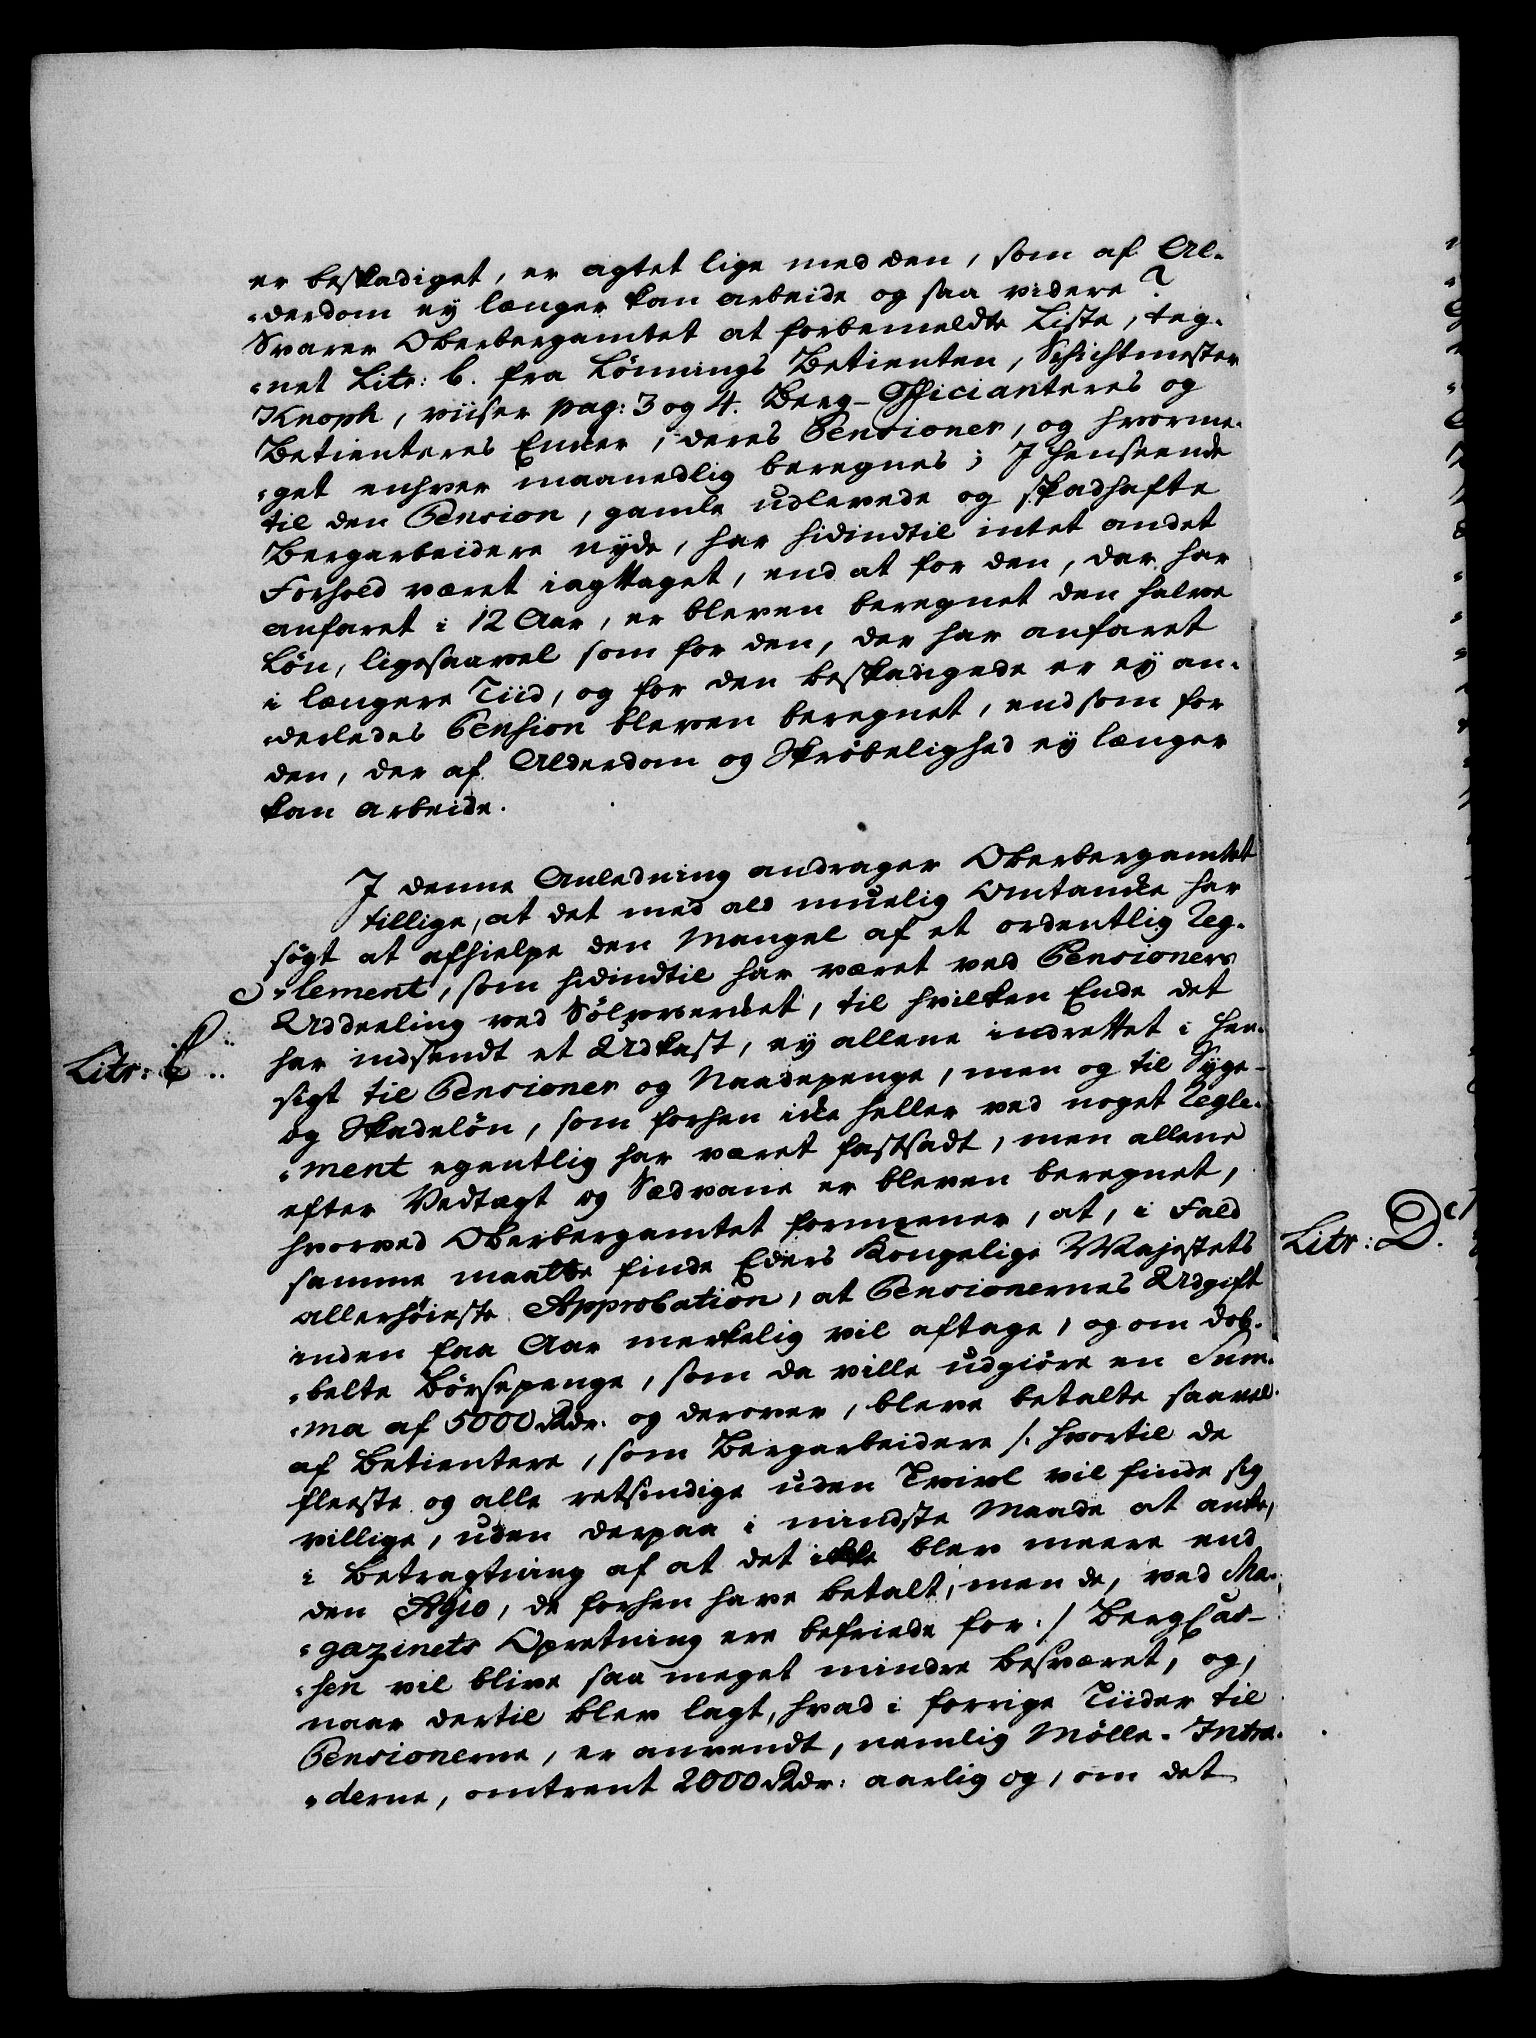 er beskadiget, er agtet lige med den, som af Al-
„derdom ey længer kan arbeide og saa videre?
Svarer Oberbergamtet at forbemeldte Liste, teg-
„net Litr: b. fra Lønnings Betienten, Schichtmester
Knoph, viiser pag: 3 og 4. Berg-Officianteres og
Betienteres Enker, deres Pensioner, og hvorme-
„get enhver maanedlig beregnes; J henseende
til den Pension, gamle udlevede og skadhafte
Bergarbeidere nyde, har hidindtil intet andet
Forhold været iagttaget, end at for den, der har
anfaret i 12 Aar, er bleven beregnet den halve
Løn, ligesaavel som for den, der har anfaret
i længere Tiid, og for den beskadigede er ey an-
„derledes Pension bleven beregnet, end som for
den, der af Alderdom og Skrøbelighed ey længer
kan arbeide.
J denne Anledning andrager Oberbergamtet
tillige, at det med ald muelig Omtanke har
søgt at afhielpe den Mangel af et ordentlig Reg-
„lement, som hidindtil har været ved Pensioners
Uddeeling ved Sølvverket, til hvilken Ende det
Litr: C.
har indsendt et Udkast, ey allene indrettet i Hen-
sigt til Pensioner og Naadepenge, men og til Syge-
og Skadeløn, som forhen ikke heller ved noget Regle-
„ment egentlig har været fastsadt, men allene
efter Vedtægt og Sædvane er bleven beregnet,
hvorved Oberbergamtet formeener, at, i Fald
Litr: D.
samme maatte finde Eders Kongelige Majestets
allerhøieste Approbation, at Pensionernes Udgift
inden faa Aar merkelig vil aftage, og om dob-
„belte Børsepenge, som da ville udgiøre en Sum-
„ma af 5000 Rdr. og derover, bleve betalte saavel
af Betientere, som Bergarbeidere /: hvortil de
fleeste og alle retsindige uden Tvivl vil finde sig
villige, uden derpaa i mindste Maade at anke,
i Betragtning af at det ikke blev meere end
den Agio, de forhen have betalt, men de, ved Ma-
„gazinets Opretning ere befriede for :/ BergCas-
„sen vil blive saa meget mindre besværet, og,
naar dertil blev lagt, hvad i forrige Tiider til
Pensionerne, er anvendt, nemlig Mølle-Intra-
„derne, omtrent 2000 Rdr: aarlig og, om det